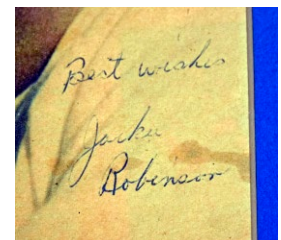 Best wishes
Jackie
Robinson